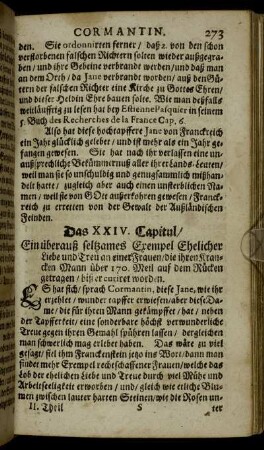 CORMANTIN. 273
den. Sie ordonnirten ferner / daß 2. von den schon
verstorbenen falschen Richtern solten wieder außgegra-
ben / und ihre Gebeine verbrandt werden / und daß man
an dem Orth / da Jane verbrandt worden / auß den Gü-
tern der falschen Richter eine Kirche zu Gottes Ehren /
und dieser Heldin Ehre bauen solte. Wie man deßfalß
weitläufftig zu lesen hat bey Estienne Pasquier in seinem
5. Buch des Recherches de la France Cap. 6.
Also hat diese hochtapffere Jane von Franckreich
ein Jahr glücklich gelebet / und ist mehr als ein Jahr ge-
fangen gewesen. Sie hat nach ihr verlassen eine un-
außsprechliche Bekümmernuß aller ihrer Lands-Leuten /
weil man sie so unschuldig und genugsamlich mißhan-
delt hatte / zugleich aber auch einen unsterblichen Na-
men / weil sie von GOtt außerkohren gewesen / Franck-
reich zu erretten von der Gewalt der Außländischen
Feinden.
Das XXIV. Capitul /
Ein überauß seltzames Exempel Ehelicher
Liebe und Treu an einer Frauen / die ihren Kran-
cken Mann über 170. Meil auf dem Rücken
getragen / biß er curiret worden.
ES hat sich / sprach Cormantin, diese Jane, wie ihr
erzehlet / wunder tapffer erwiesen / aber diese Da-
me / die für ihren Mann gekämpffet / hat / neben
der Tapfferkeit / eine sonderbare höchst verwunderliche
Treue gegen ihren Gemahl spühren lassen / dergleichen
man schwerlich mag erlebet haben. Das wäre zu viel
gesagt / fiel ihm Franckenstein jetzo ins Wort / dann man
findet mehr Exempel rechtschaffener Frauen / welche das
Lob der ehelichen Liebe und Treue durch viel Mühe und
Arbeitseeligkeit erworben / und / gleich wie etliche Blu-
men zwischen lauter harten Steinen / wie die Rosen un-
II. Theil S ter